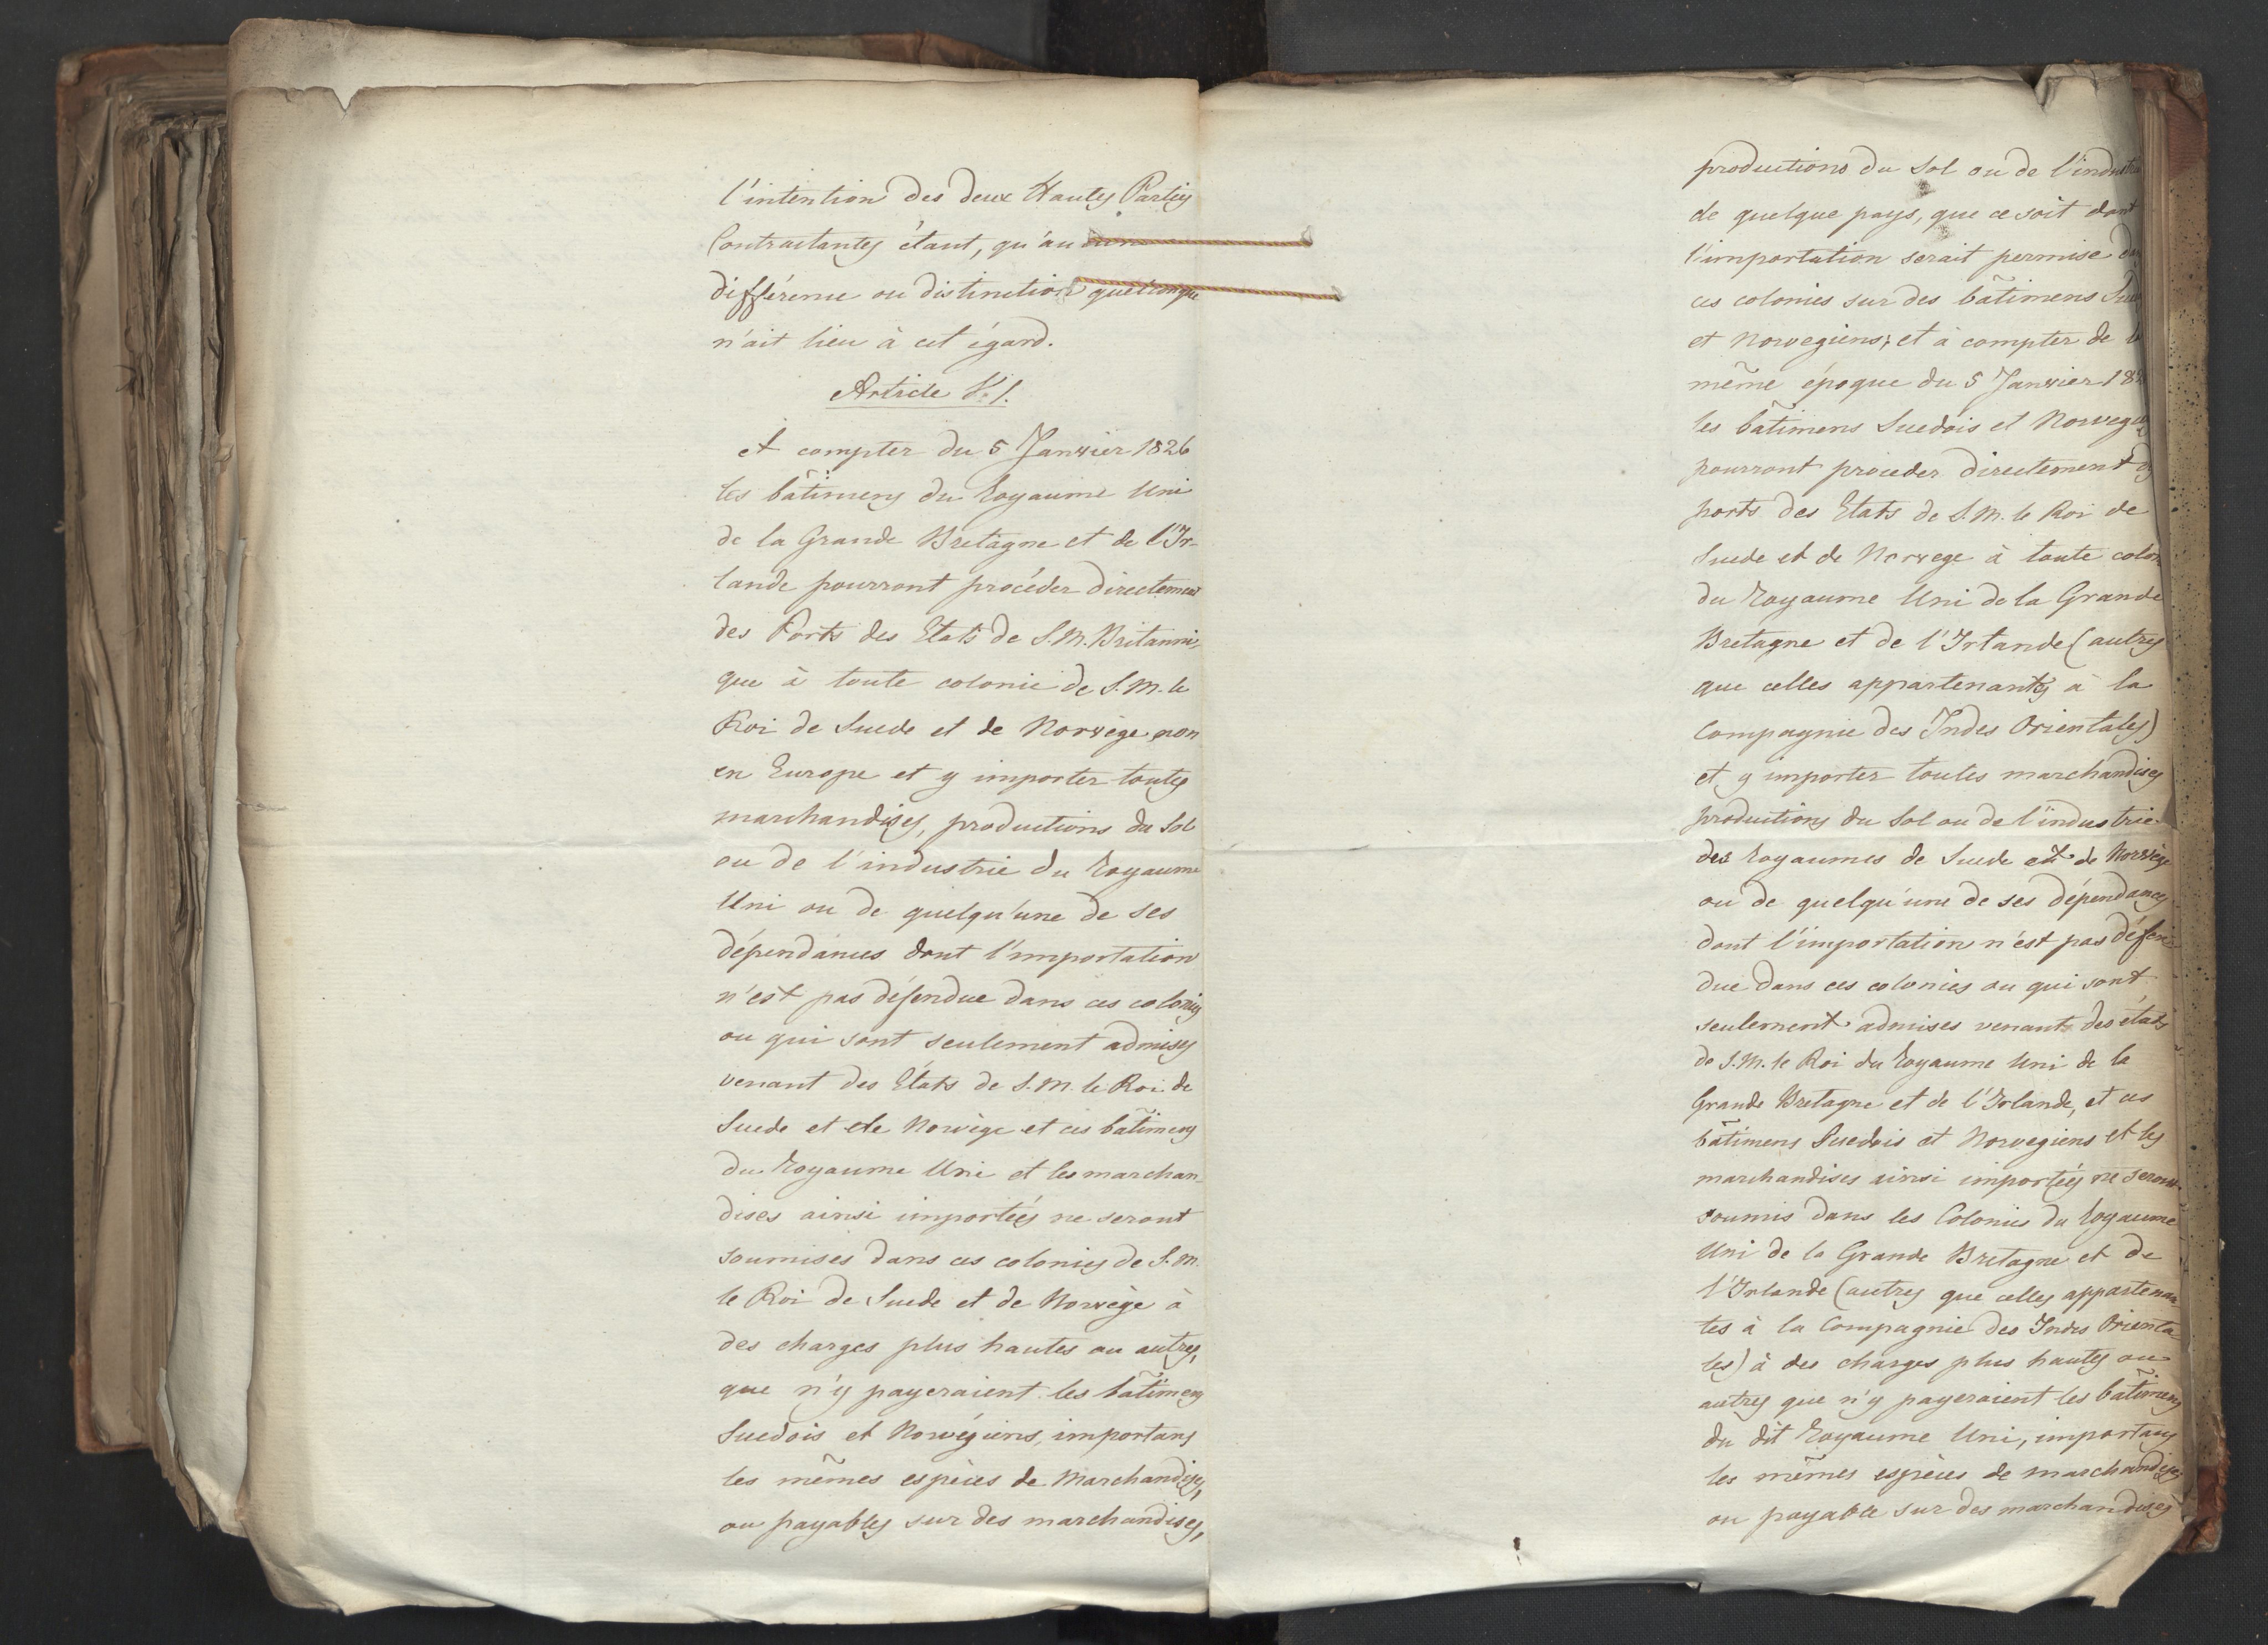 l'intention des deux Hautes Parties
Contractantes étant, qu'aucune
différence ou distinction quelconque
n'ait lieu à cet égard.
Article VI.
A compter du 5 Janvier 1826
les bâtimens du Royaume Uni
de la Grande Bretagne et de l'Ir-
lande pourront procéder directement
des Ports des Etats de S. M. Britanni-
que à toute colonie de S. M. le
Roi de Suede et de Norvège non
en Europe et y importer toutes
marchandises, productions du Sol
ou de l'industrie du Royaume
Uni ou de quelqu'une de ses
dépendances dont l'importation
n'est pas défendue dans ces colonies
ou qui sont seulement admises
venant des Etats de S. M. le Roi de
Suede et de Norvège et ces bâtimens
du Royaume Uni et les marchan-
dises ainsi importées ne seront
soumises dans ces colonies de S. M.
le Roi de Suede et de Norvège à
des charges plus hautes ou autres,
que n'y payeraient les bâtimens
Suedois et Norvégiens, important
les mêmes espèces de Marchandises,
ou payables sur des marchandises,
productions du Sol ou de l'industrie
de quelque pays, que ce soit dont
l'importation serait permise
ces colonies sur des bâtimens
et Norvegiens; et à compter de
même époque du 5 Janvier 182
les bâtimens Suedois et Norvegi
pourront proceder directement
ports des Etats de S. M. le Roi de
Suede et de Norvege à toute colon
du Royaume Uni de la Grande
Bretagne et de l'Irlande (autres
que celles appartenantes à la
Compagnie des Indes Orientales)
et y importer toutes marchandises
productions du Sol ou de l'industrie
des Royaumes de Suede et de Norvège
ou de quelqu'une de ses dépendances
dont l'importation n'est pas défen-
due dans ces colonies ou qui sont
seulement admises venant des états
de S. M. le Roi du Royaume Uni de la
Grande Bretagne et de l'Irlande, et ces
bâtimens Suedois et Norvegiens et les
marchandises ainsi importées ne seront
soumis dans les Colonies du Royaume
Uni de la Grande Bretagne et de
l'Irlande (autres que celles appartenan-
tes à la Compagnie des Indes Orienta-
les) à des charges plus hautes ou
autres que n'y payeraient les bâtimens
du dit Royaume Uni, important
les mêmes espèces de marchandises
ou payable sur des marchandises